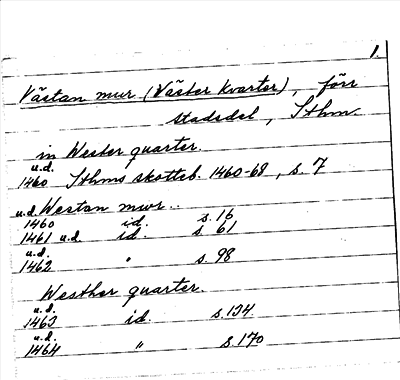 1.
Västan mur (Väster Kvarter), förr
stadsdel, Sthm.
in Wester quarter.
u.d.
1460 Sthms skotteb. 1460-68, s. 7
u.d. Westan mwr..
1460 id. s. 16
1461 u.d. id. s. 61
u.d.
1462 " s. 98
Westher quarter.
u.d.
1463 id. s. 134
u.d.
1464 " s. 170